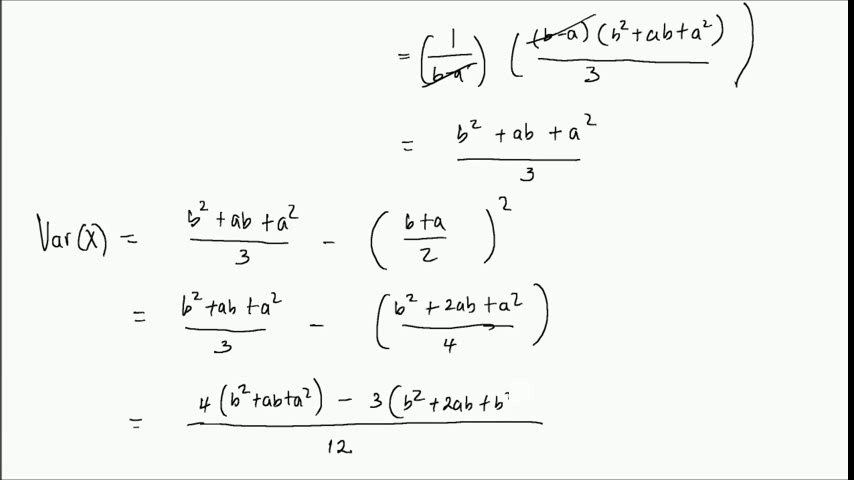 = (1/(b-a)) ((b-a)(b²+ab+a²)/3)
= (b² + ab + a²)/3
Var(X) = (b² + ab + a²)/3 - ((b+a)/2)²
= (b² + ab + a²)/3 - ((b² + 2ab + a²)/4)
= (4(b²+ab+a²) - 3(b²+2ab+b²)/12